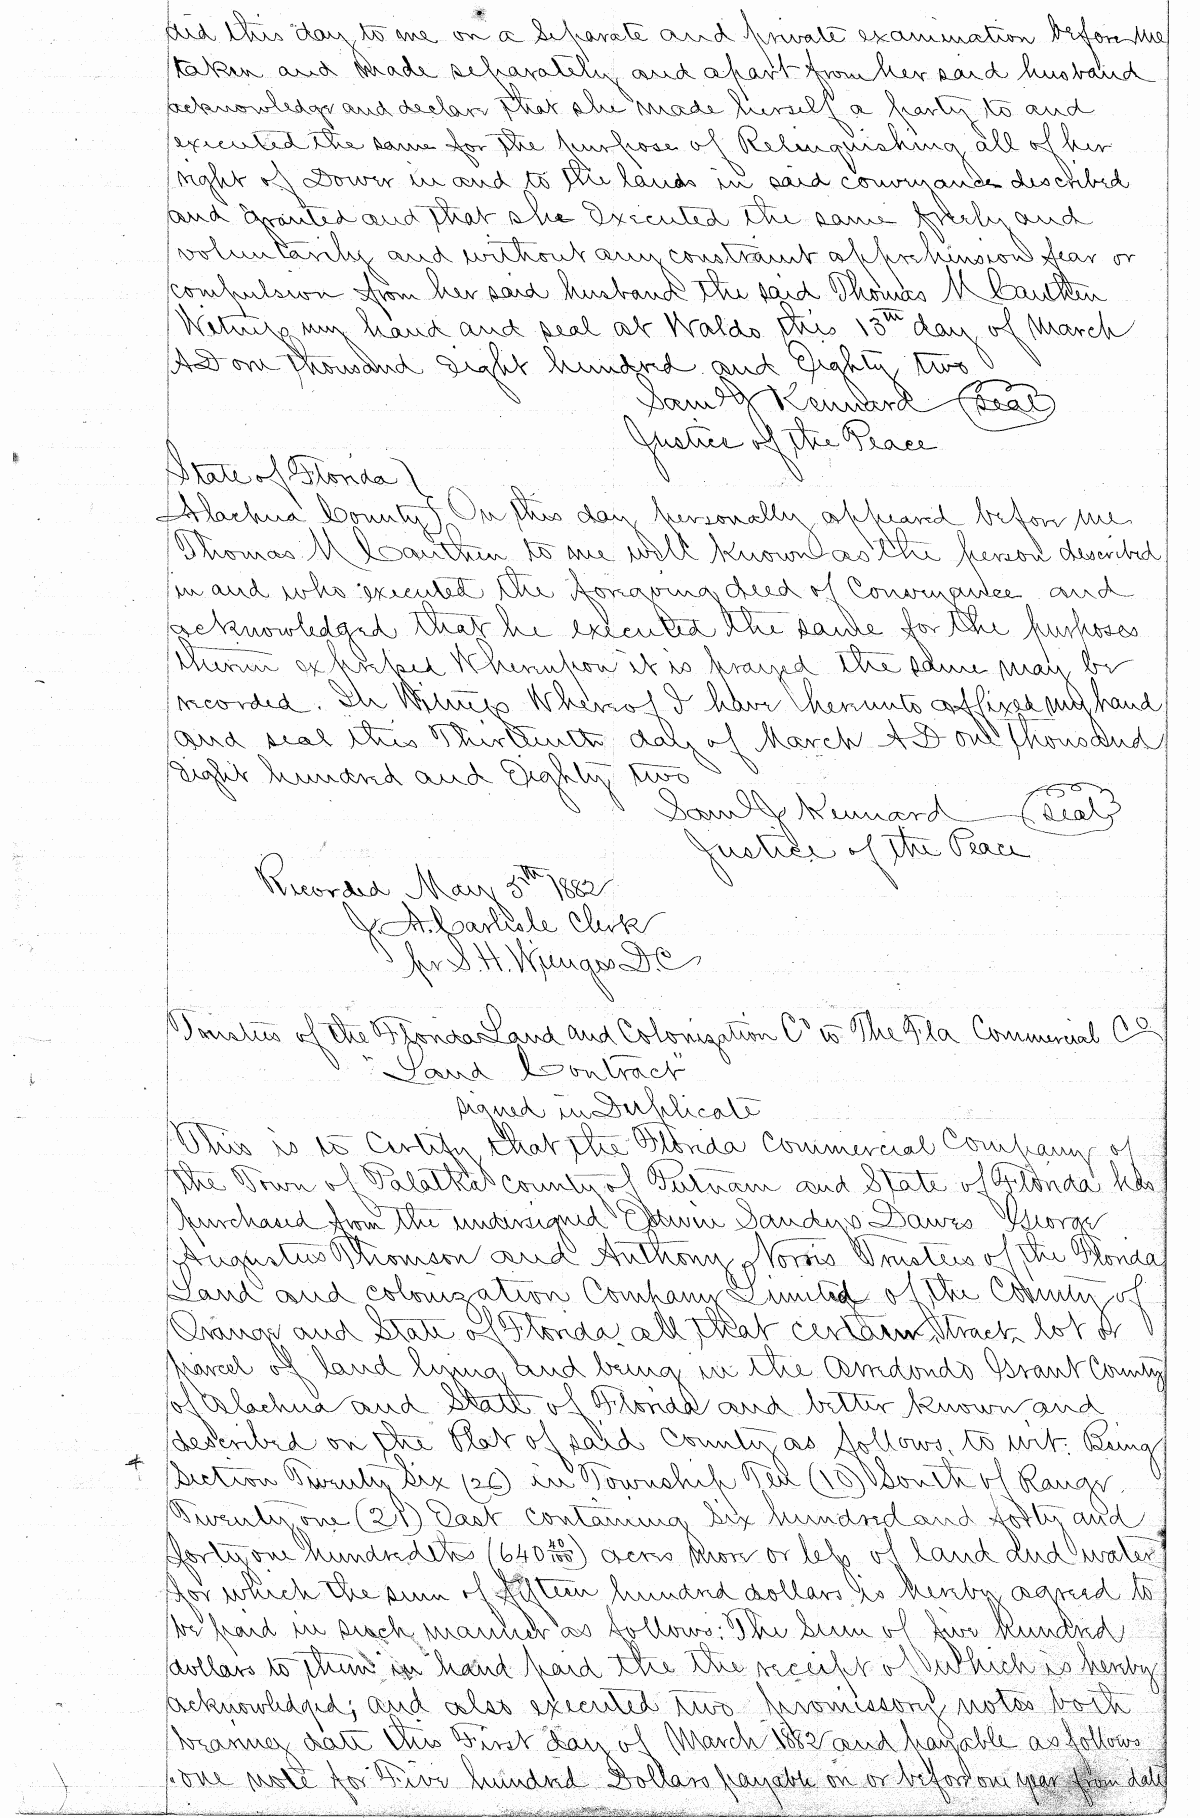 did this day to me on a separate and private examination before me
taken and made separately and apart from her said husband
acknowledge and declare that she made herself a party to and
executed the same for the purpose of Relinquishing all of her
right of Dower in and to the lands in said conveyance described
and granted and that she Executed the same freely and
voluntarily and without any constraint apprehension fear or
compulsion from her said husband the said Thomas M Cauthen
Witness my hand and seal at Waldo this 13th day of March
AD one thousand Eight hundred and Eighty two
Saml J Kennard (Seal)
Justice of the Peace
State of Florida }
Alachua County } On this day personally appeared before me
Thomas M Cauthen to me well known as the person described
in and who executed the foregoing deed of Conveyance and
acknowledged that he executed the same for the purposes
therein expressed Whereupon it is prayed the same may be
recorded. In Witness Whereof I have hereunto affixed my hand
and seal this Thirteenth day of March AD one thousand
Eight hundred and Eighty two
Saml J Kennard (Seal)
Justice of the Peace
Recorded May 5th 1882
J. A. Carlisle Clerk
pr S. H. Wienges D.C
Trustees of the Florida Land and Colonization Co to The Fla Commercial Co
"Land Contract"
signed in Duplicate
This is to Certify that the Florida Commercial Company of
the Town of Palatka county of Putnam and State of Florida has
purchased from the undersigned Edwin Sandys Dawes George
Augustus Thomson and Anthony Norris Trustees of the Florida
Land and colonization Company Limited of the County of
Orange and State of Florida all that certain tract lot or
parcel of land lying and being in the Arredondo Grant County
of Alachua and State of Florida and better known and
described on the Plat of said County as follows, to wit: Being
Section Twenty Six (26) in Township Ten (10) South of Range
Twenty one (21) East containing Six hundred and forty and
forty one hundredeths (640 40/100) acres more or less of land and water
for which the sum of fifteen hundred dollars is hereby agreed to
be paid in such manner as follows: The Sum of five hundred
dollars to them in hand paid the the receipt of which is hereby
acknowledged; and also executed two promissory notes both
bearing date this First day of March 1882 and payable as follows
one note for Five hundred Dollars payable on or before one year from date